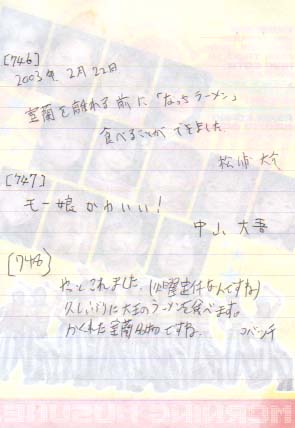 [746]
2003年 2月22日
室蘭を離れる前に「なっちラーメン」
食べることができました
松浦 大介
[747]
モー娘かわいい！
中山 大吾
[748]
やっとこれました。(火曜定休なんですね)
久しぶりに大王のラーメンを食べます。
かくれた室蘭名物ですね。 コバッチ
MORNING MUSUME